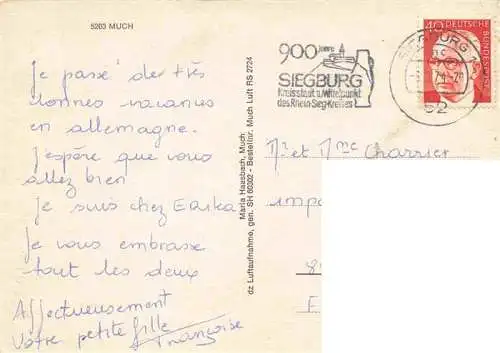 5203 MUCH
Je passé der très
bonnes vacances
en allemagne.
J'espère que vous
allez bien
Je suis chez Erika
Je vous embrasse
tout les deux
Affectueusement
Votre petite fille
Françoise
Maria Haasbach, Much
dz Luftaufnahme, gen. SH 60302 - Bestellnr. Much Luft RS 2724
900 Jahre
SIEGBURG
Kreisstadt u. Mittelpunkt
des Rhein-Sieg-Kreises
SIEGBURG 1
52
40 DEUTSCHE
BUNDESPOST
Mr et Mme Charrier
imp